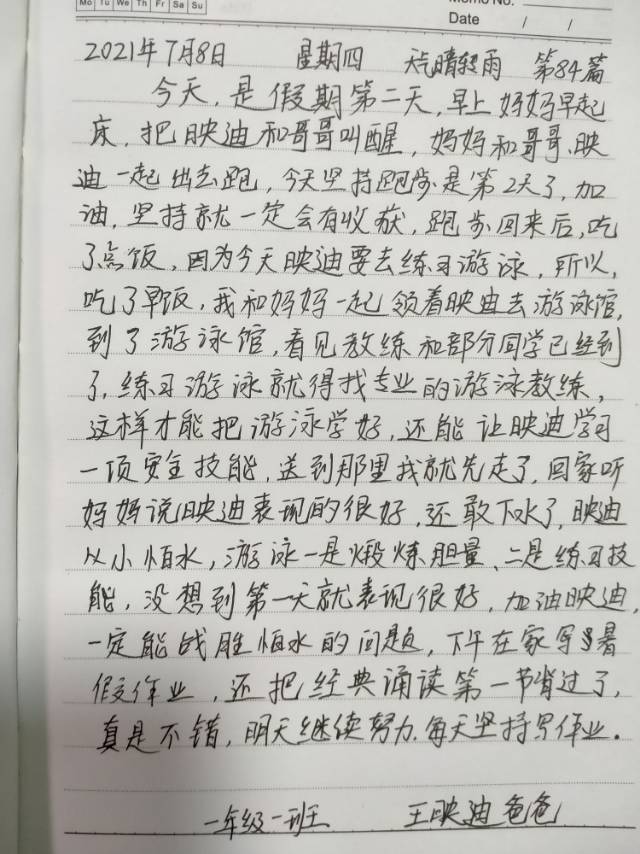 Mo Tu We Th Fr Sa Su
Memo No.
Date / /
2021年7月8日 星期四 天气晴转雨 第84篇
今天,是假期第二天,早上妈妈早起
床,把映迪和哥哥叫醒,妈妈和哥哥、映
迪一起出去跑,今天坚持跑步是第2天了,加
油,坚持就一定会有收获,跑步回来后,吃
了点饭,因为今天映迪要去练习游泳,所以,
吃了早饭,我和妈妈一起领着映迪去游泳馆,
到了游泳馆,看见教练和部分同学已经到
了,练习游泳就得找专业的游泳教练,
这样才能把游泳学好,还能让映迪学习
一项安全技能,送到那里我就先走了,回家听
妈妈说映迪表现的很好,还敢下水了,映迪
从小怕水,游泳一是煅炼胆量、二是练习技
能,没想到第一天就表现很好,加油映迪,
一定能战胜怕水的问题,下午在家写暑
假作业,还把经典诵读第一节背过了,
真是不错,明天继续努力,每天坚持写作业。
一年级一班 王映迪爸爸